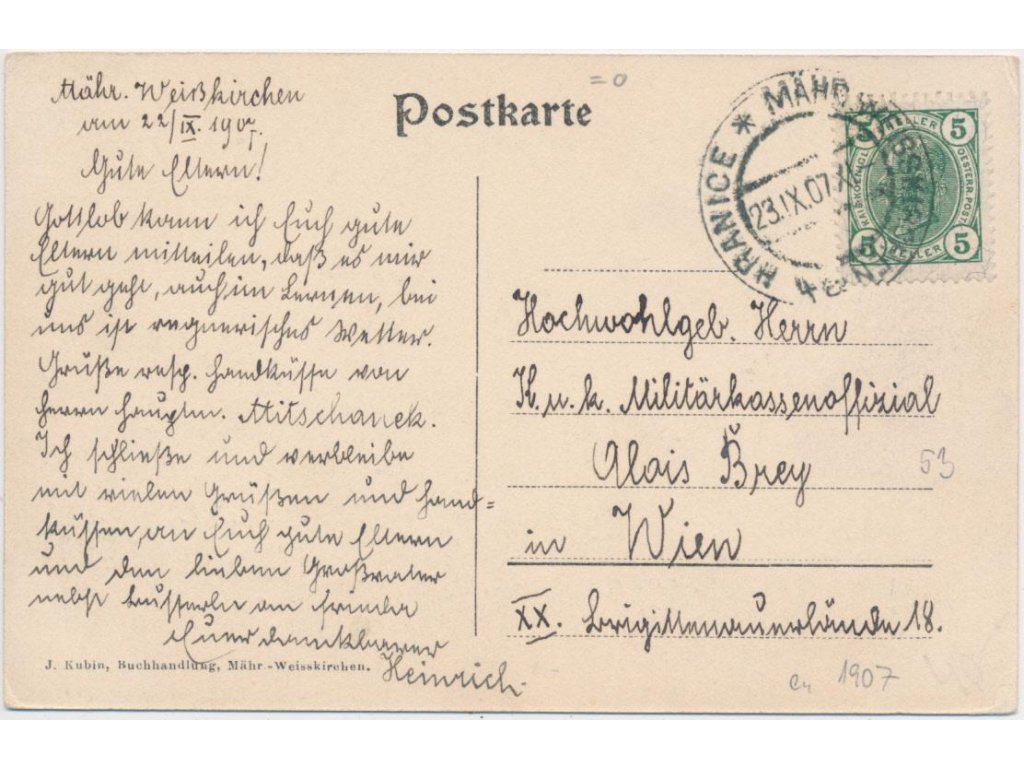 = 0
Postkarte
Mähr. Weißkirchen
am 22/IX. 1907.
Gute Eltern!
Gottlob kann ich Euch gute
Eltern mitteilen, daß es mir
gut geht, auch im Lernen, bei
uns ist regnerisches Wetter.
Grüße resp. Handküsse von
Herrn Hauptm. Mitschanek.
Ich schließe und verbleibe
mit vielen Grüßen und Hand=
küssen, an Euch gute Eltern
und den lieben Großvater
nebst Busserln an
Euer dankbarer
Heinrich.
J. Kubin, Buchhandlung, Mähr.-Weisskirchen.
HRANICE * MÄHR. WEISSKIRCHEN
23.IX.07
5 HELLER 5
KAIS. KOENIGL. OESTERR. POST
5 HELLER 5
Hochwohlgeb. Herrn
K. u. k. Militärkassenoffizial
Alois Brey
53
in Wien
XX. Brigittenauerlände 18.
1907